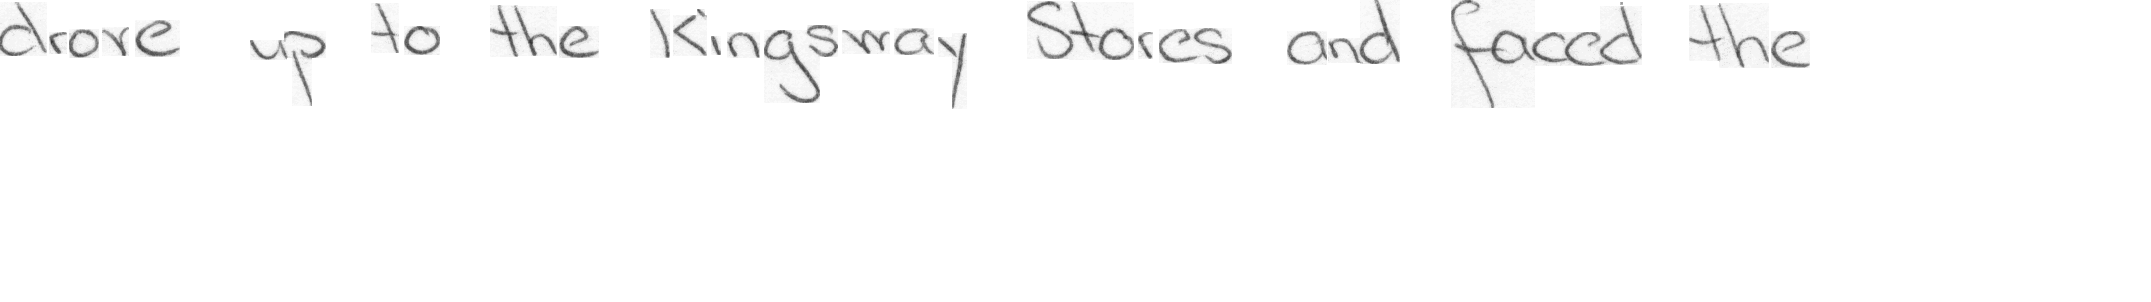 drove up to the Kingsway Stores and faced the